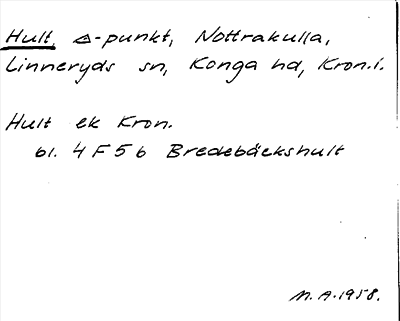 Hult, △-punkt, Nottrakulla,
Linneryds sn, Konga hd, Kron.l.
Hult ek Kron.
bl. 4 F 5 b Bredebäckshult
M. A. 1958.